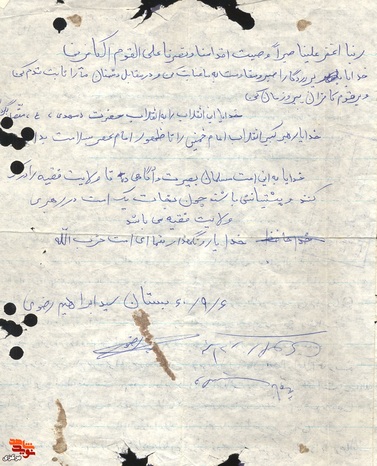 ربنا افرغ علینا صبراً و ثبت اقدامنا و نصرنا علی القوم الکافرین
خدایا پروردگارا صبر و مقاومت به ما عنایت کن و در مقابل دشمنان ما را ثابت قدم کن
و بر قوم کافران پیروزمان کن
خدایا این انقلاب را به انقلاب حضرت مهدی (عج) متصل
خدایا رهبر کبیر انقلاب امام خمینی را تا ظهور امام عصر سلامت بدار
خدایا به این امت مسلمان بصیرت و آگاهی ده تا ولایت فقیه را درک
کنند و پشتیبانش باشند چون نجات یک امت در رهبری
ولایت فقیه می باشد
خدایا نگهدار شما ای امت حزب الله
۶۰/۹/۶ بستان سید ابراهیم رضوی